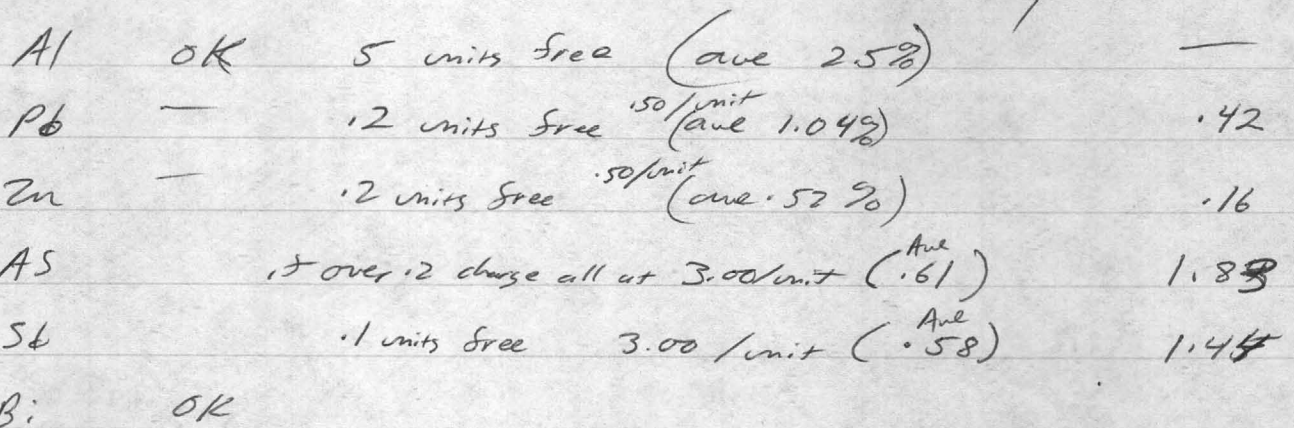 Al OK 5 units free (ave 25%) —
Pb — .2 units free .50/unit (ave 1.04%) .42
Zn — .2 units free .50/unit (ave .52%) .16
AS if over .2 charge all at 3.00/unit (Ave .61) 1.83
Sb .1 units free 3.00/unit (Ave .58) 1.44
Bi OK